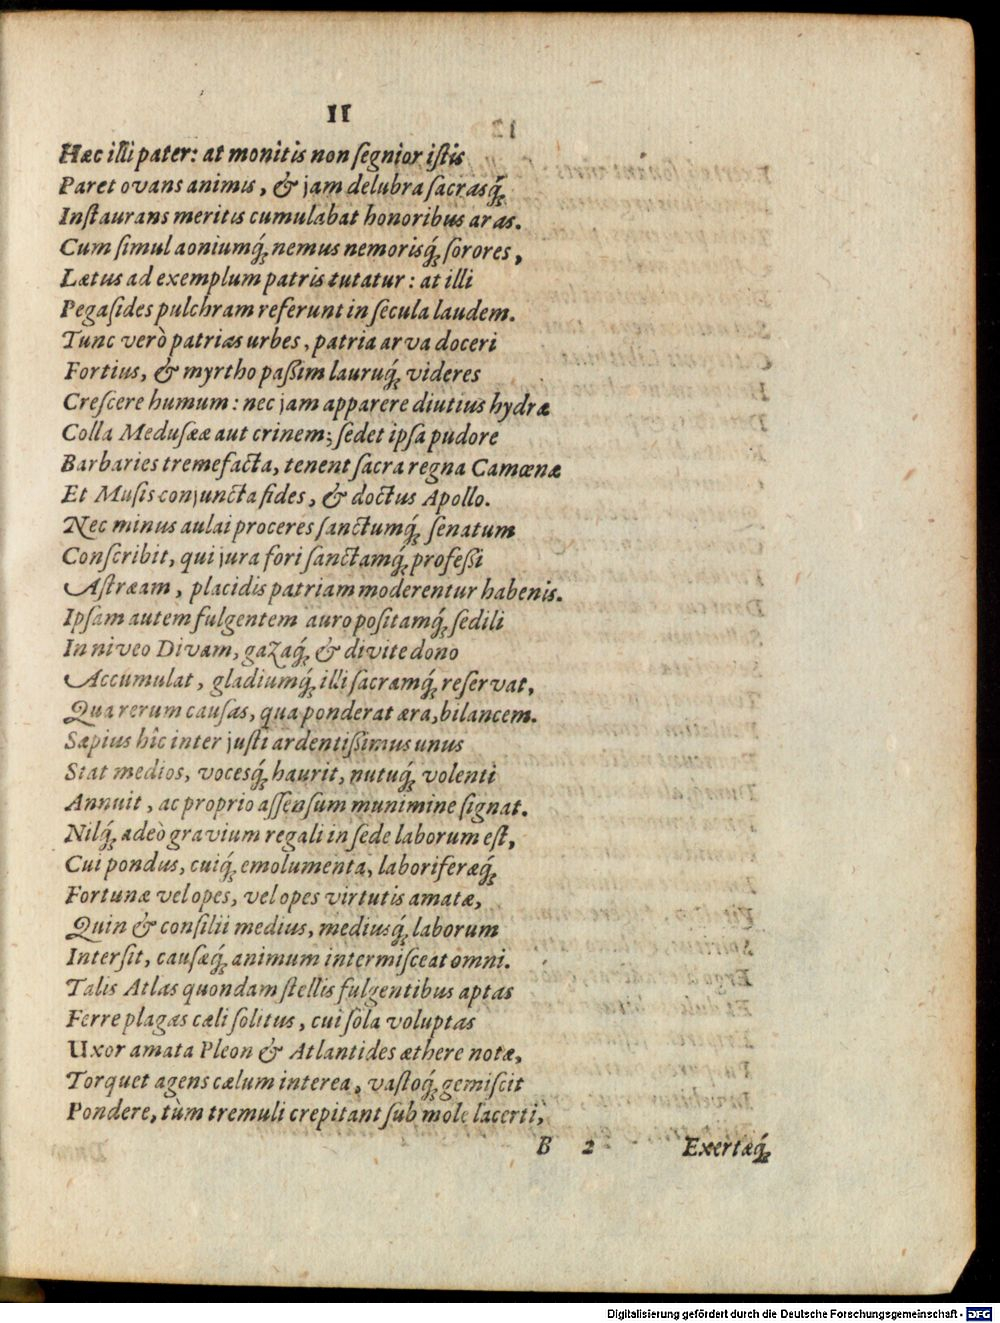 11
Hæc illi pater: at monitis non segnior istis
Paret ovans animis, & jam delubra sacrasq́;
Instaurans meritis cumulabat honoribus aras.
Cum simul aoniumq́; nemus nemorisq́; sorores,
Lætus ad exemplum patris tutatur: at illi
Pegasides pulchram referunt in secula laudem.
Tunc verò patrias urbes, patria arva doceri
Fortius, & myrtho paßim lauruq́; videres
Crescere humum: nec jam apparere diutius hydræ
Colla Medusææ aut crinem; sedet ipsa pudore
Barbaries tremefacta, tenent sacra regna Camœnæ
Et Musis conjuncta fides, & doctus Apollo.
Nec minus aulai proceres sanctumq́; senatum
Conscribit, qui jura fori sanctamq́; profeßi
Astræam, placidis patriam moderentur habenis.
Ipsam autem fulgentem auro positamq́; sedili
In niveo Divam, gazaq́; & divite dono
Accumulat, gladiumq́; illi sacramq́; reservat,
Qua rerum causas, qua ponderat æra, bilancem.
Sæpius hîc inter justi ardentißimus unus
Stat medios, vocesq́; haurit, nutuq́; volenti
Annuit, ac proprio assensum munimine signat.
Nilq́; adeò gravium regali in sede laborum est,
Cui pondus, cuiq́; emolumenta, laboriferæq́;
Fortunæ vel opes, vel opes virtutis amatæ,
Quin & consilii medius, mediusq́; laborum
Intersit, causæq́; animum intermisceat omni.
Talis Atlas quondam stellis fulgentibus aptas
Ferre plagas cæli solitus, cui sola voluptas
Uxor amata Pleon & Atlantides æthere notæ,
Torquet agens cælum interea, vastoq́; gemiscit
Pondere, tùm tremuli crepitant sub mole lacerti,
B 2 Exertæq́;
Digitalisierung gefördert durch die Deutsche Forschungsgemeinschaft - DFG